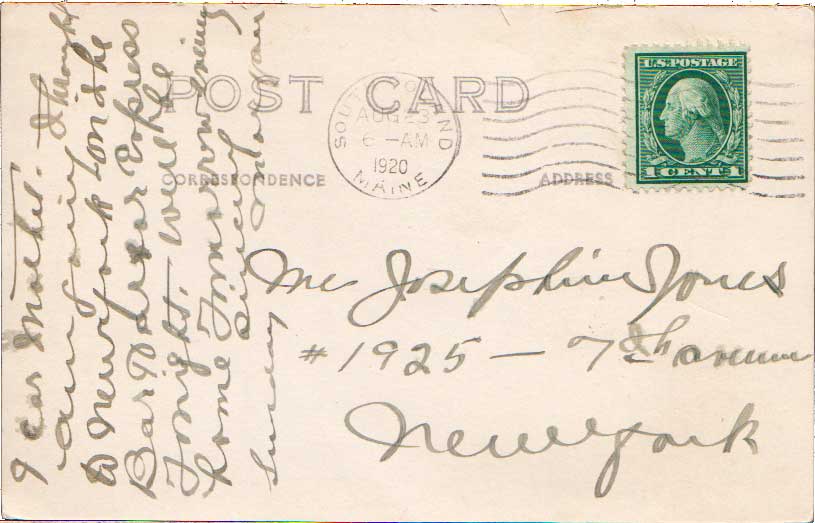 POST CARD
CORRESPONDENCE
ADDRESS
SOUTH POLAND
AUG 23
6-AM
1920
MAINE
U.S. POSTAGE
1 CENT 1
Josephine Jones
#1925 - 7th avenue
New York
Dear Mother. I thought
am going
to New York on the
Bar Harbor Express
Tonight, will be
home Tomorrow evening
Sincerely
Sunday